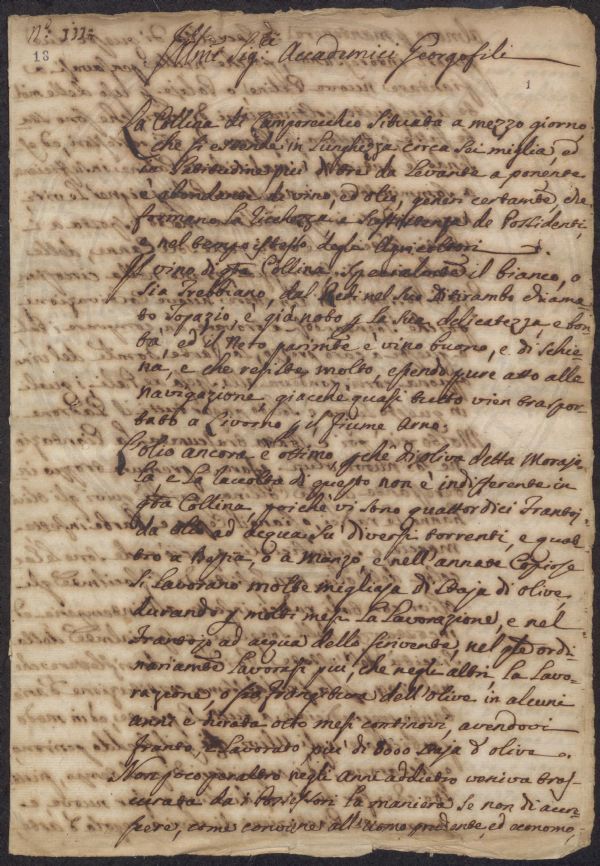 N.º III:
18
Ill.mi Sig.ri Accademici Georgofili
1
La Collina di Camporecchio Situata a mezzo giorno,
che si estende in Lunghezza circa Sei miglia, e
La Latitudine più di tre da Levante a ponente
è abondante di vino, ed olio, generi certam.te che
formano La ricchezza e Sussistenza de Possidenti,
e nel tempo istesso degli Agricoltori.
Il vino di q.ta Collina Specialm.te il bianco, o
Sia Trebbiano, dal Redi nel Suo Ditirambo chiama
to Topazio, è già noto p La Sua delicatezza, e bon
tà, ed il Nero parim.te è vino buono, e di schie
na, e che resiste molto, essendo pure atto alla
navigazione, giacchè quasi tutto vien traspor
tato a Livorno p il fiume Arno.
L'olio ancora è ottimo, p chè di oliva detta Moraje
La, e La raccolta di questo non è indifferente in
q.ta Collina, perchè vi sono quattordici Frantoj
da olio ad acqua Su diversi torrenti, e quat
tro a Bestia, o a Manzo e nell'annate Copiose
Si Lavorano molte migliaja di Staja di olive,
durando p molti mesi La Lavorazione, e nel
Frantojo ad acqua dello scrivente, nel q.le ordi
nariam.te Lavorasi più, che negli altri, La Lavo
razione, o sia frangitura dell'olive in alcuni
anni è durata otto mesi continovi, avendovi
franto, e Lavorato più di 8000 Staja d'olive.
Non poco peraltro negli anni addietro veniva tras
curata da i Possessori La maniera se non di accre
scere, come conviene all'uomo prudente, ed economo,